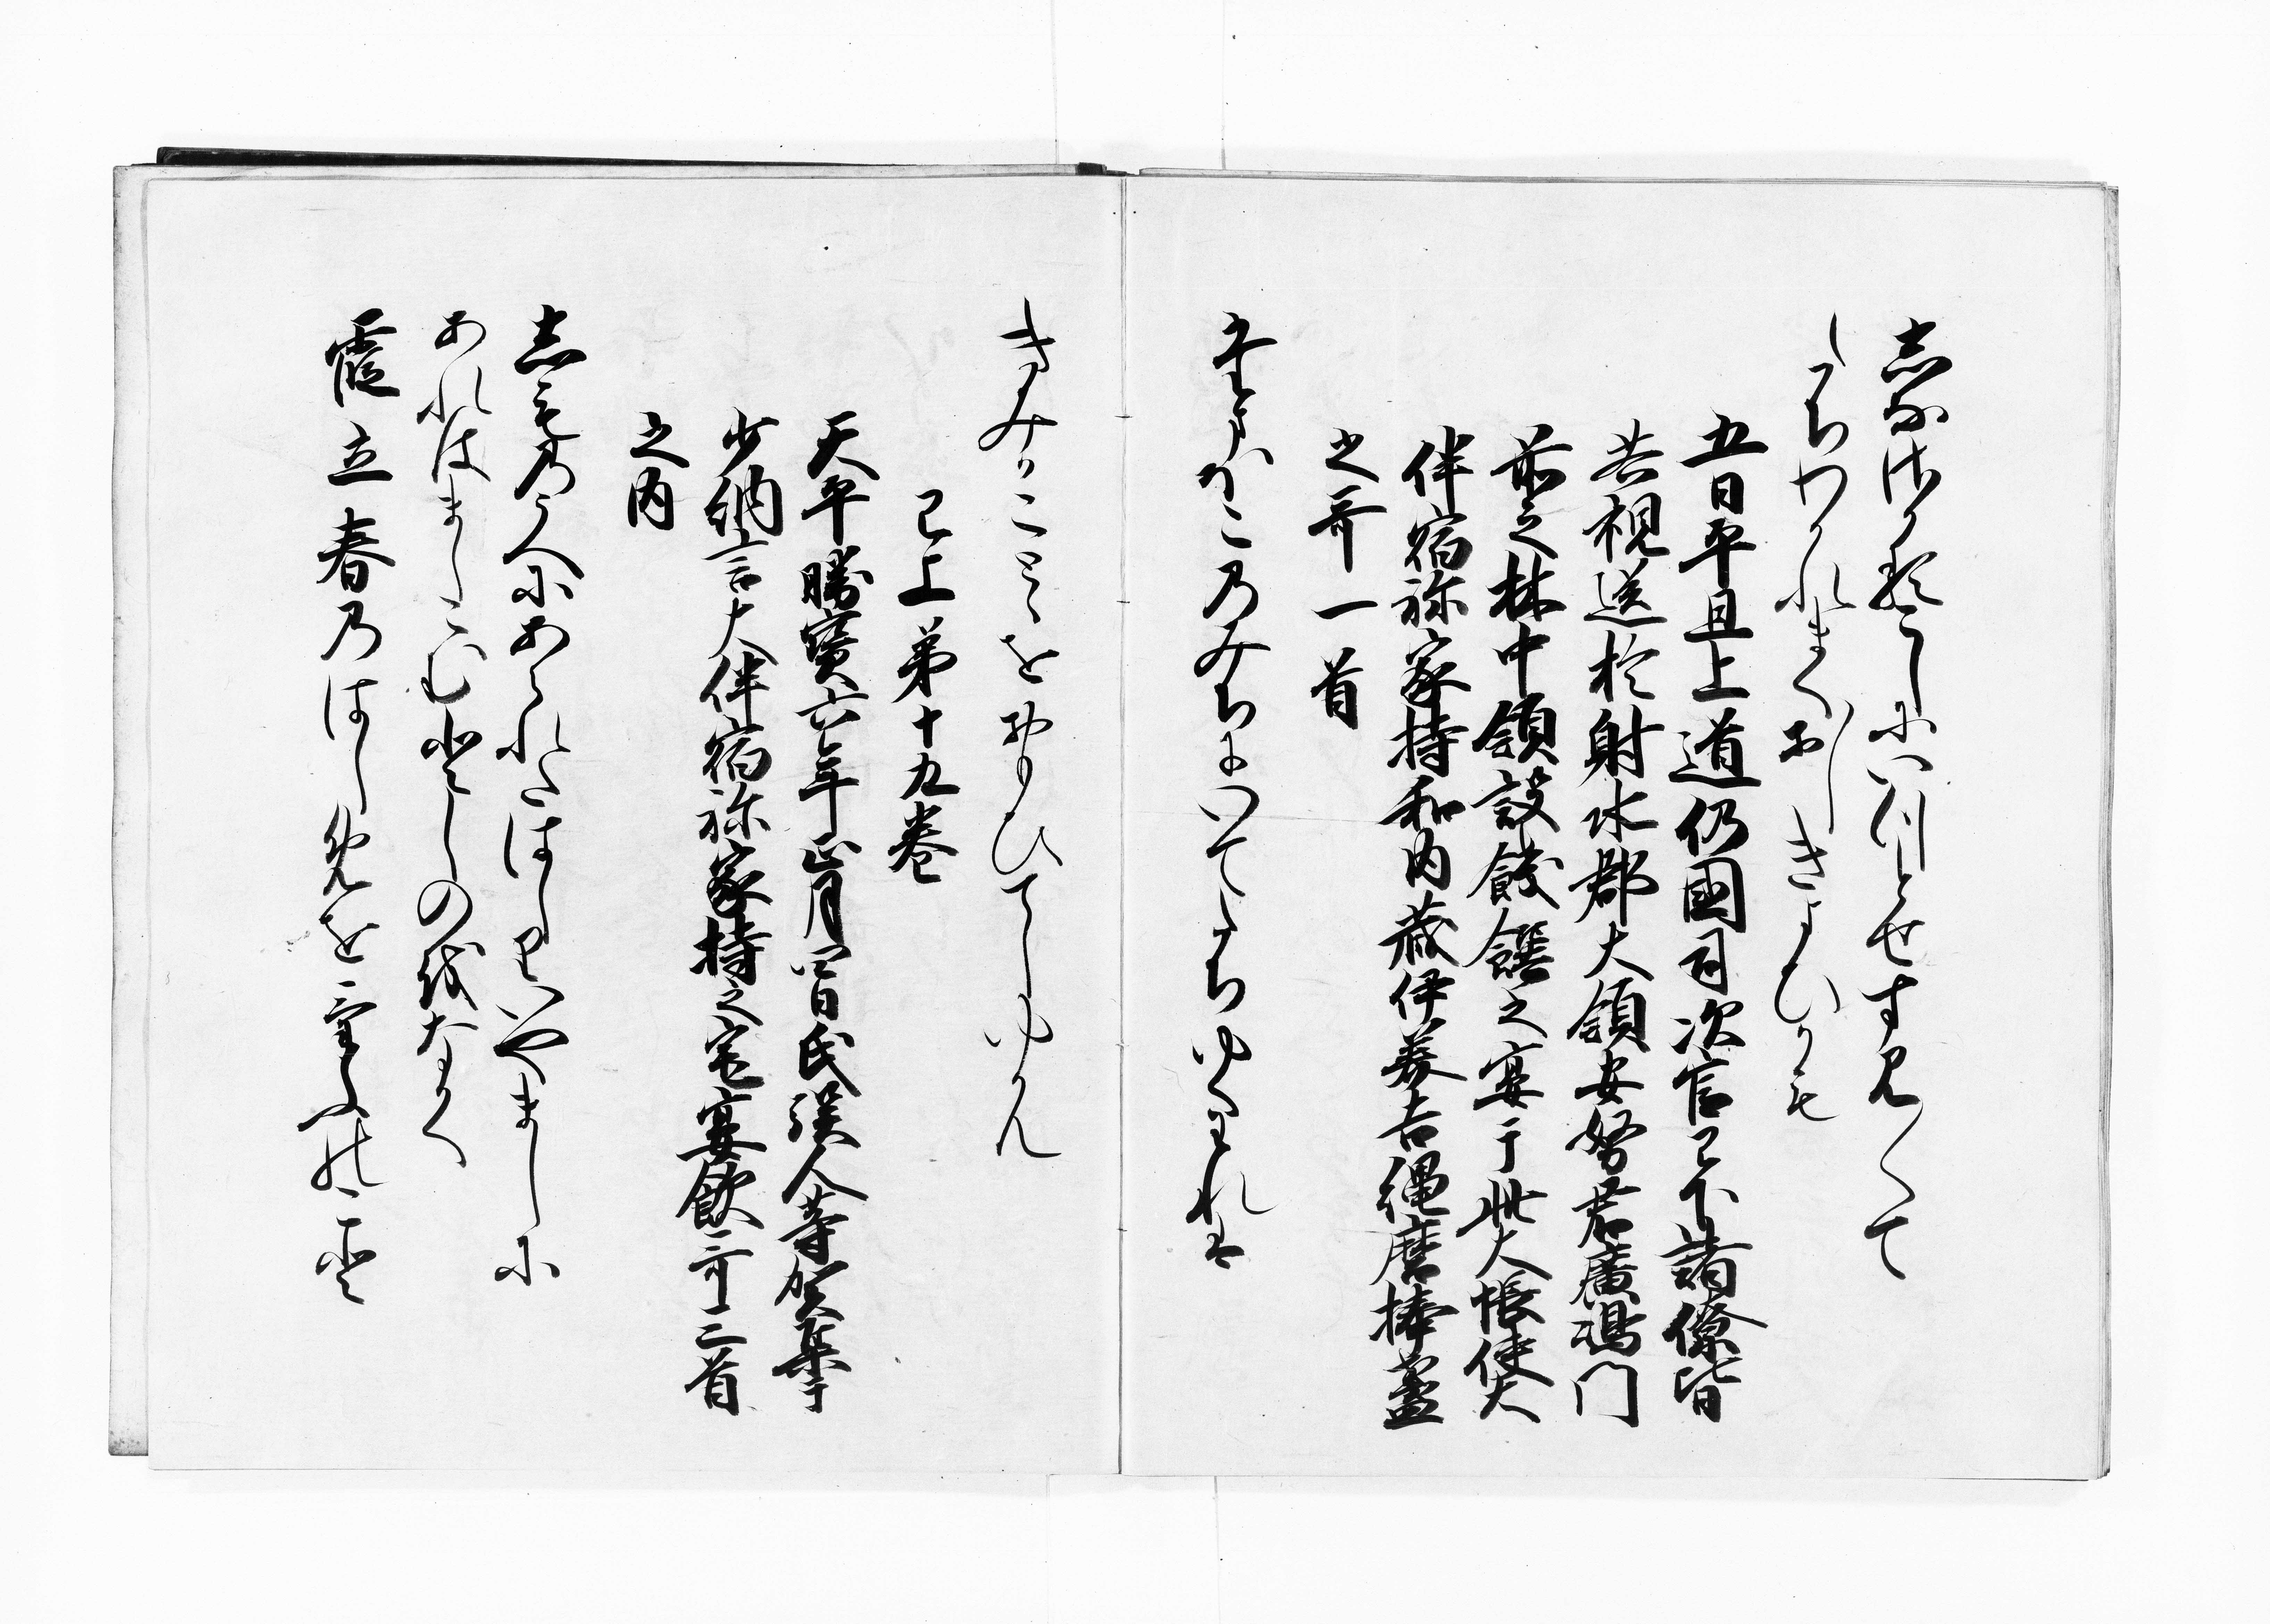 志なさかるこしにいつとせすみ〱て
たちわかれまくおしきよひかも
五日平旦上道仍國司次官已下諸僚皆
共視送於射水郡大領安努君廣嶋門
前之林中預設餞饌之宴于此大帳使大
伴宿祢家持和内蔵伊美吉縄麿捧盞
之哥一首
玉ほこのみちにいてたちゆくわれは
きみかことをおひてしゆかん
已上第十九巻
天平勝寳六年正月四日氏族人等賀集于
少納言大伴宿祢家持之宅宴飲哥三首
之内
志ものうへにあられたはしりいやましに
あれはまゐこむ年のをなかく
霞立春のはしめを